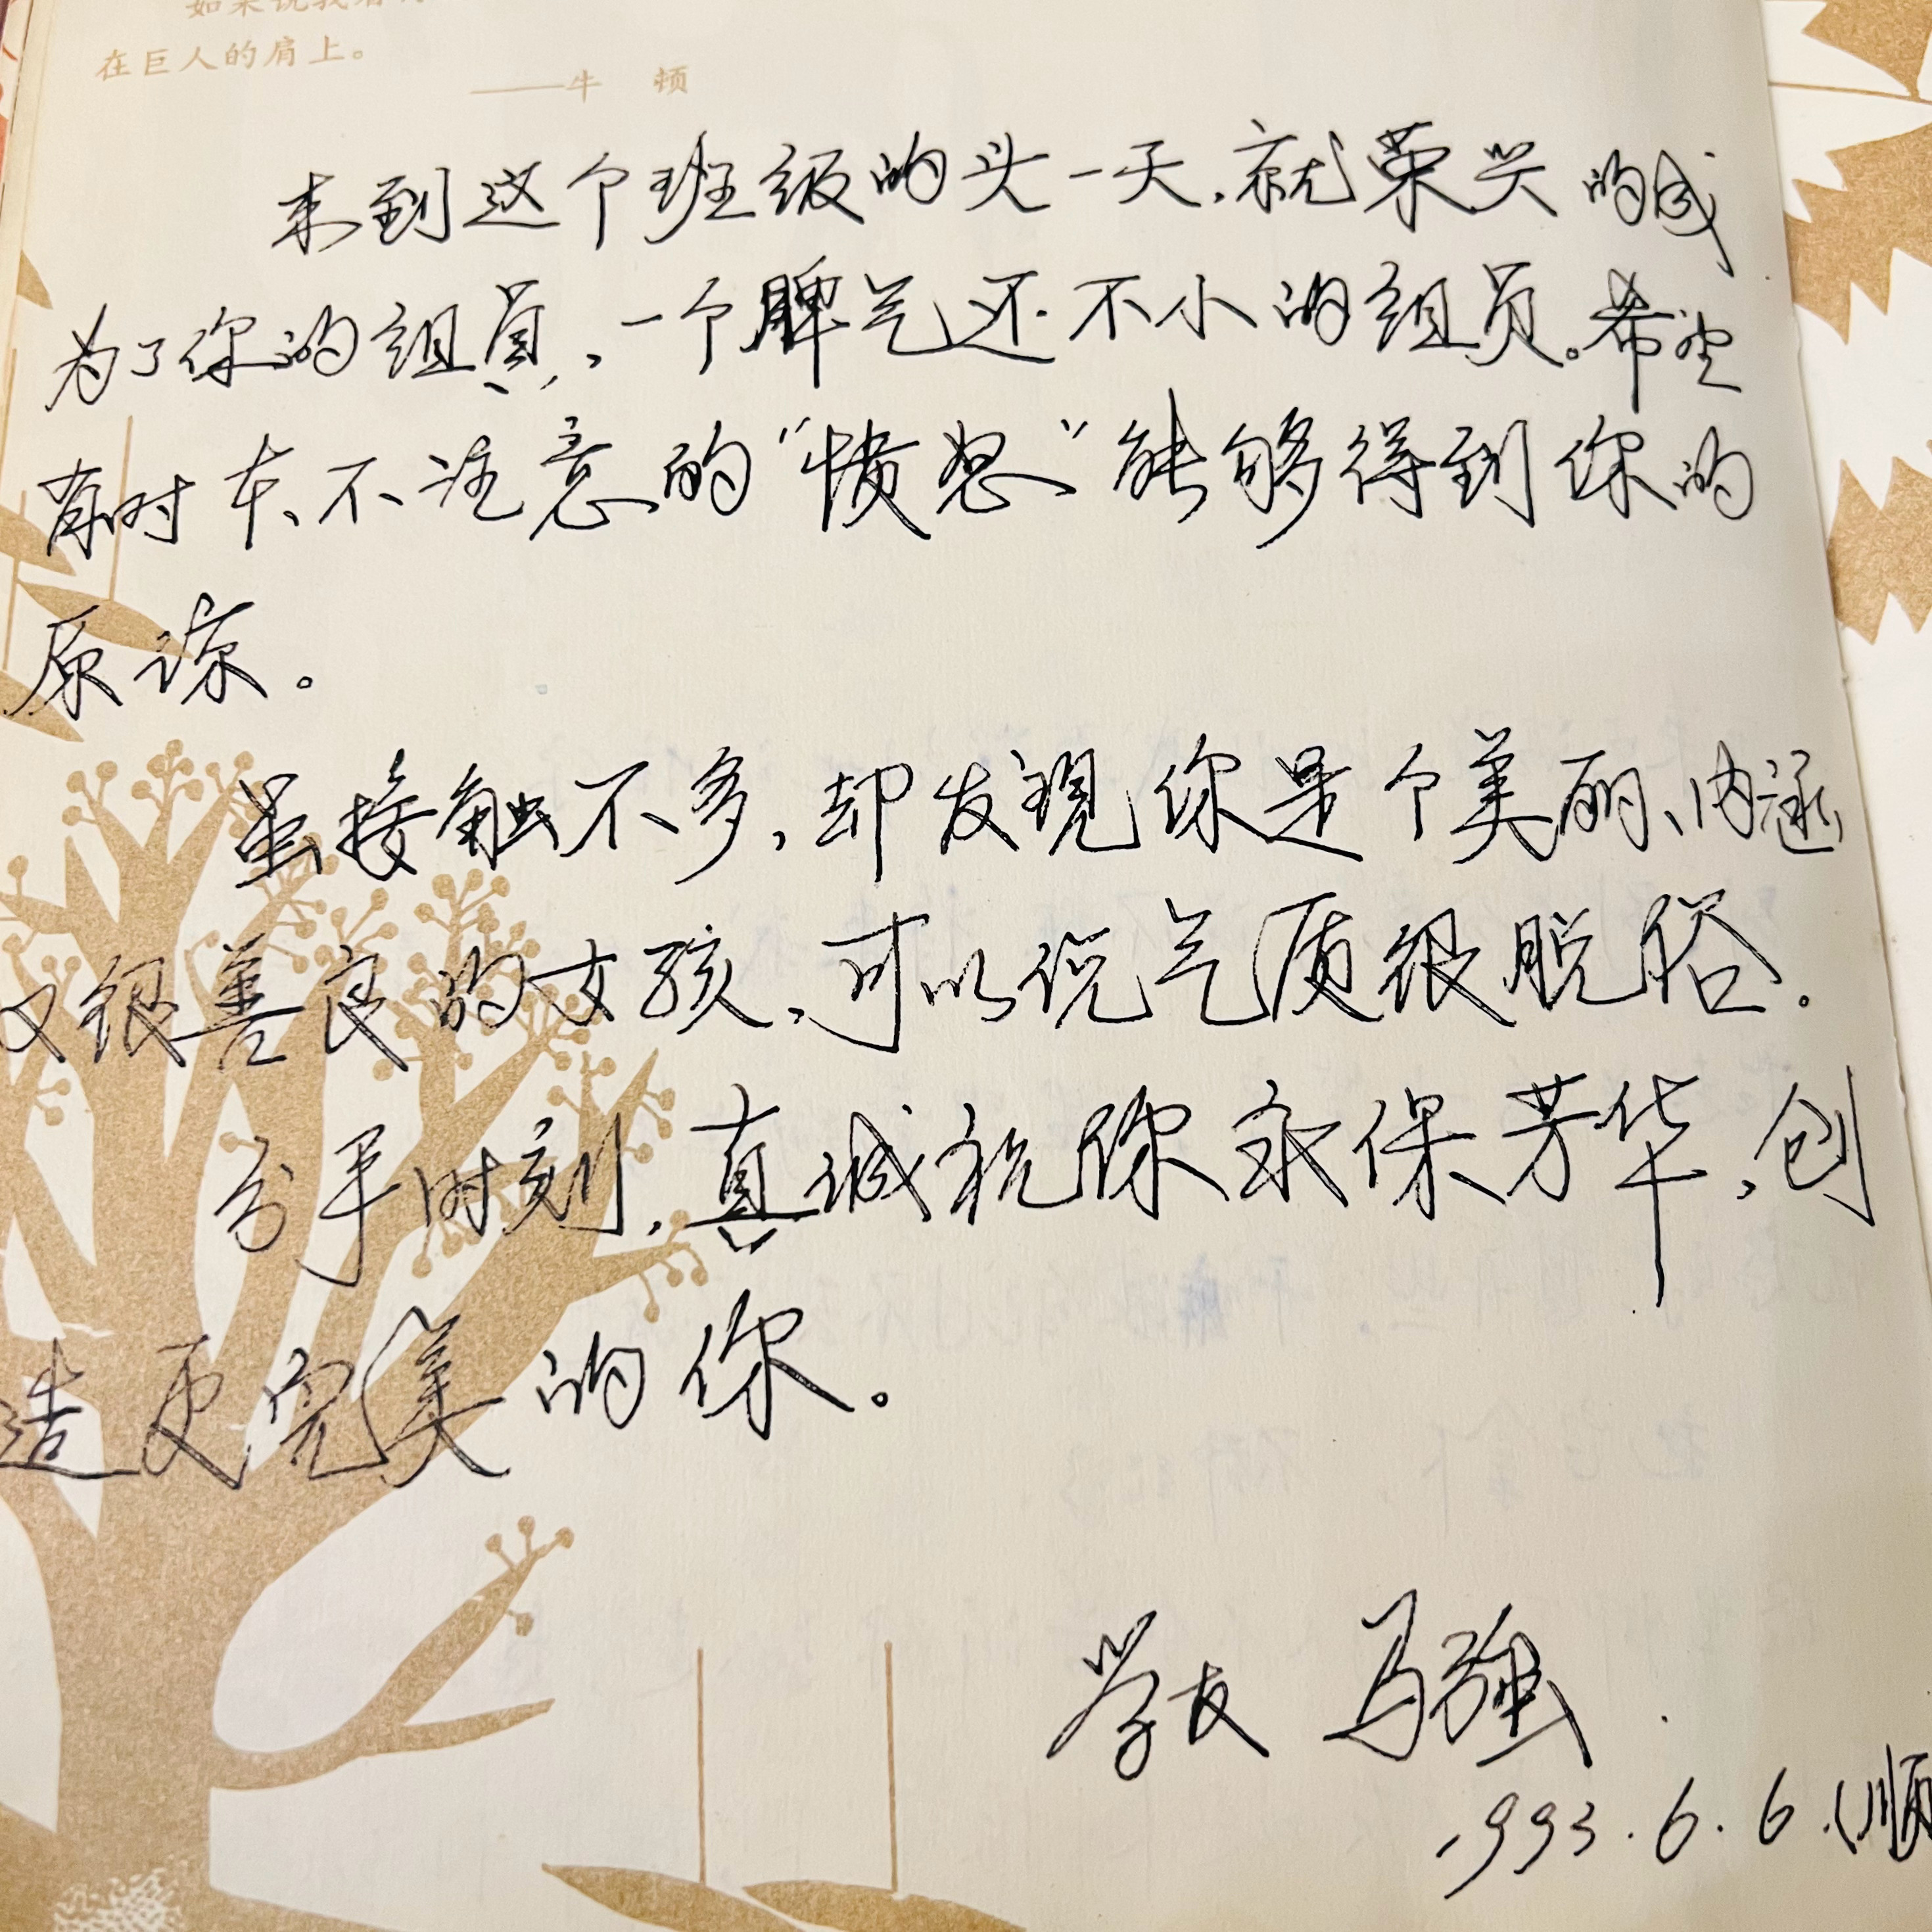 如果说我看
在巨人的肩上。
——牛 顿
来到这个班级的头一天,就荣兴的成
为了你的组员,一个脾气还不小的组员。希望
有时在不注意的“愤怒”能够得到你的
原谅。
虽接触不多,却发现你是个美丽、内涵
又很善良的女孩,可以说气质很脱俗。
分手时刻,真诚祝你永保芳华,创
造更完美的你。
学友 马强
1993.6.6.(顺